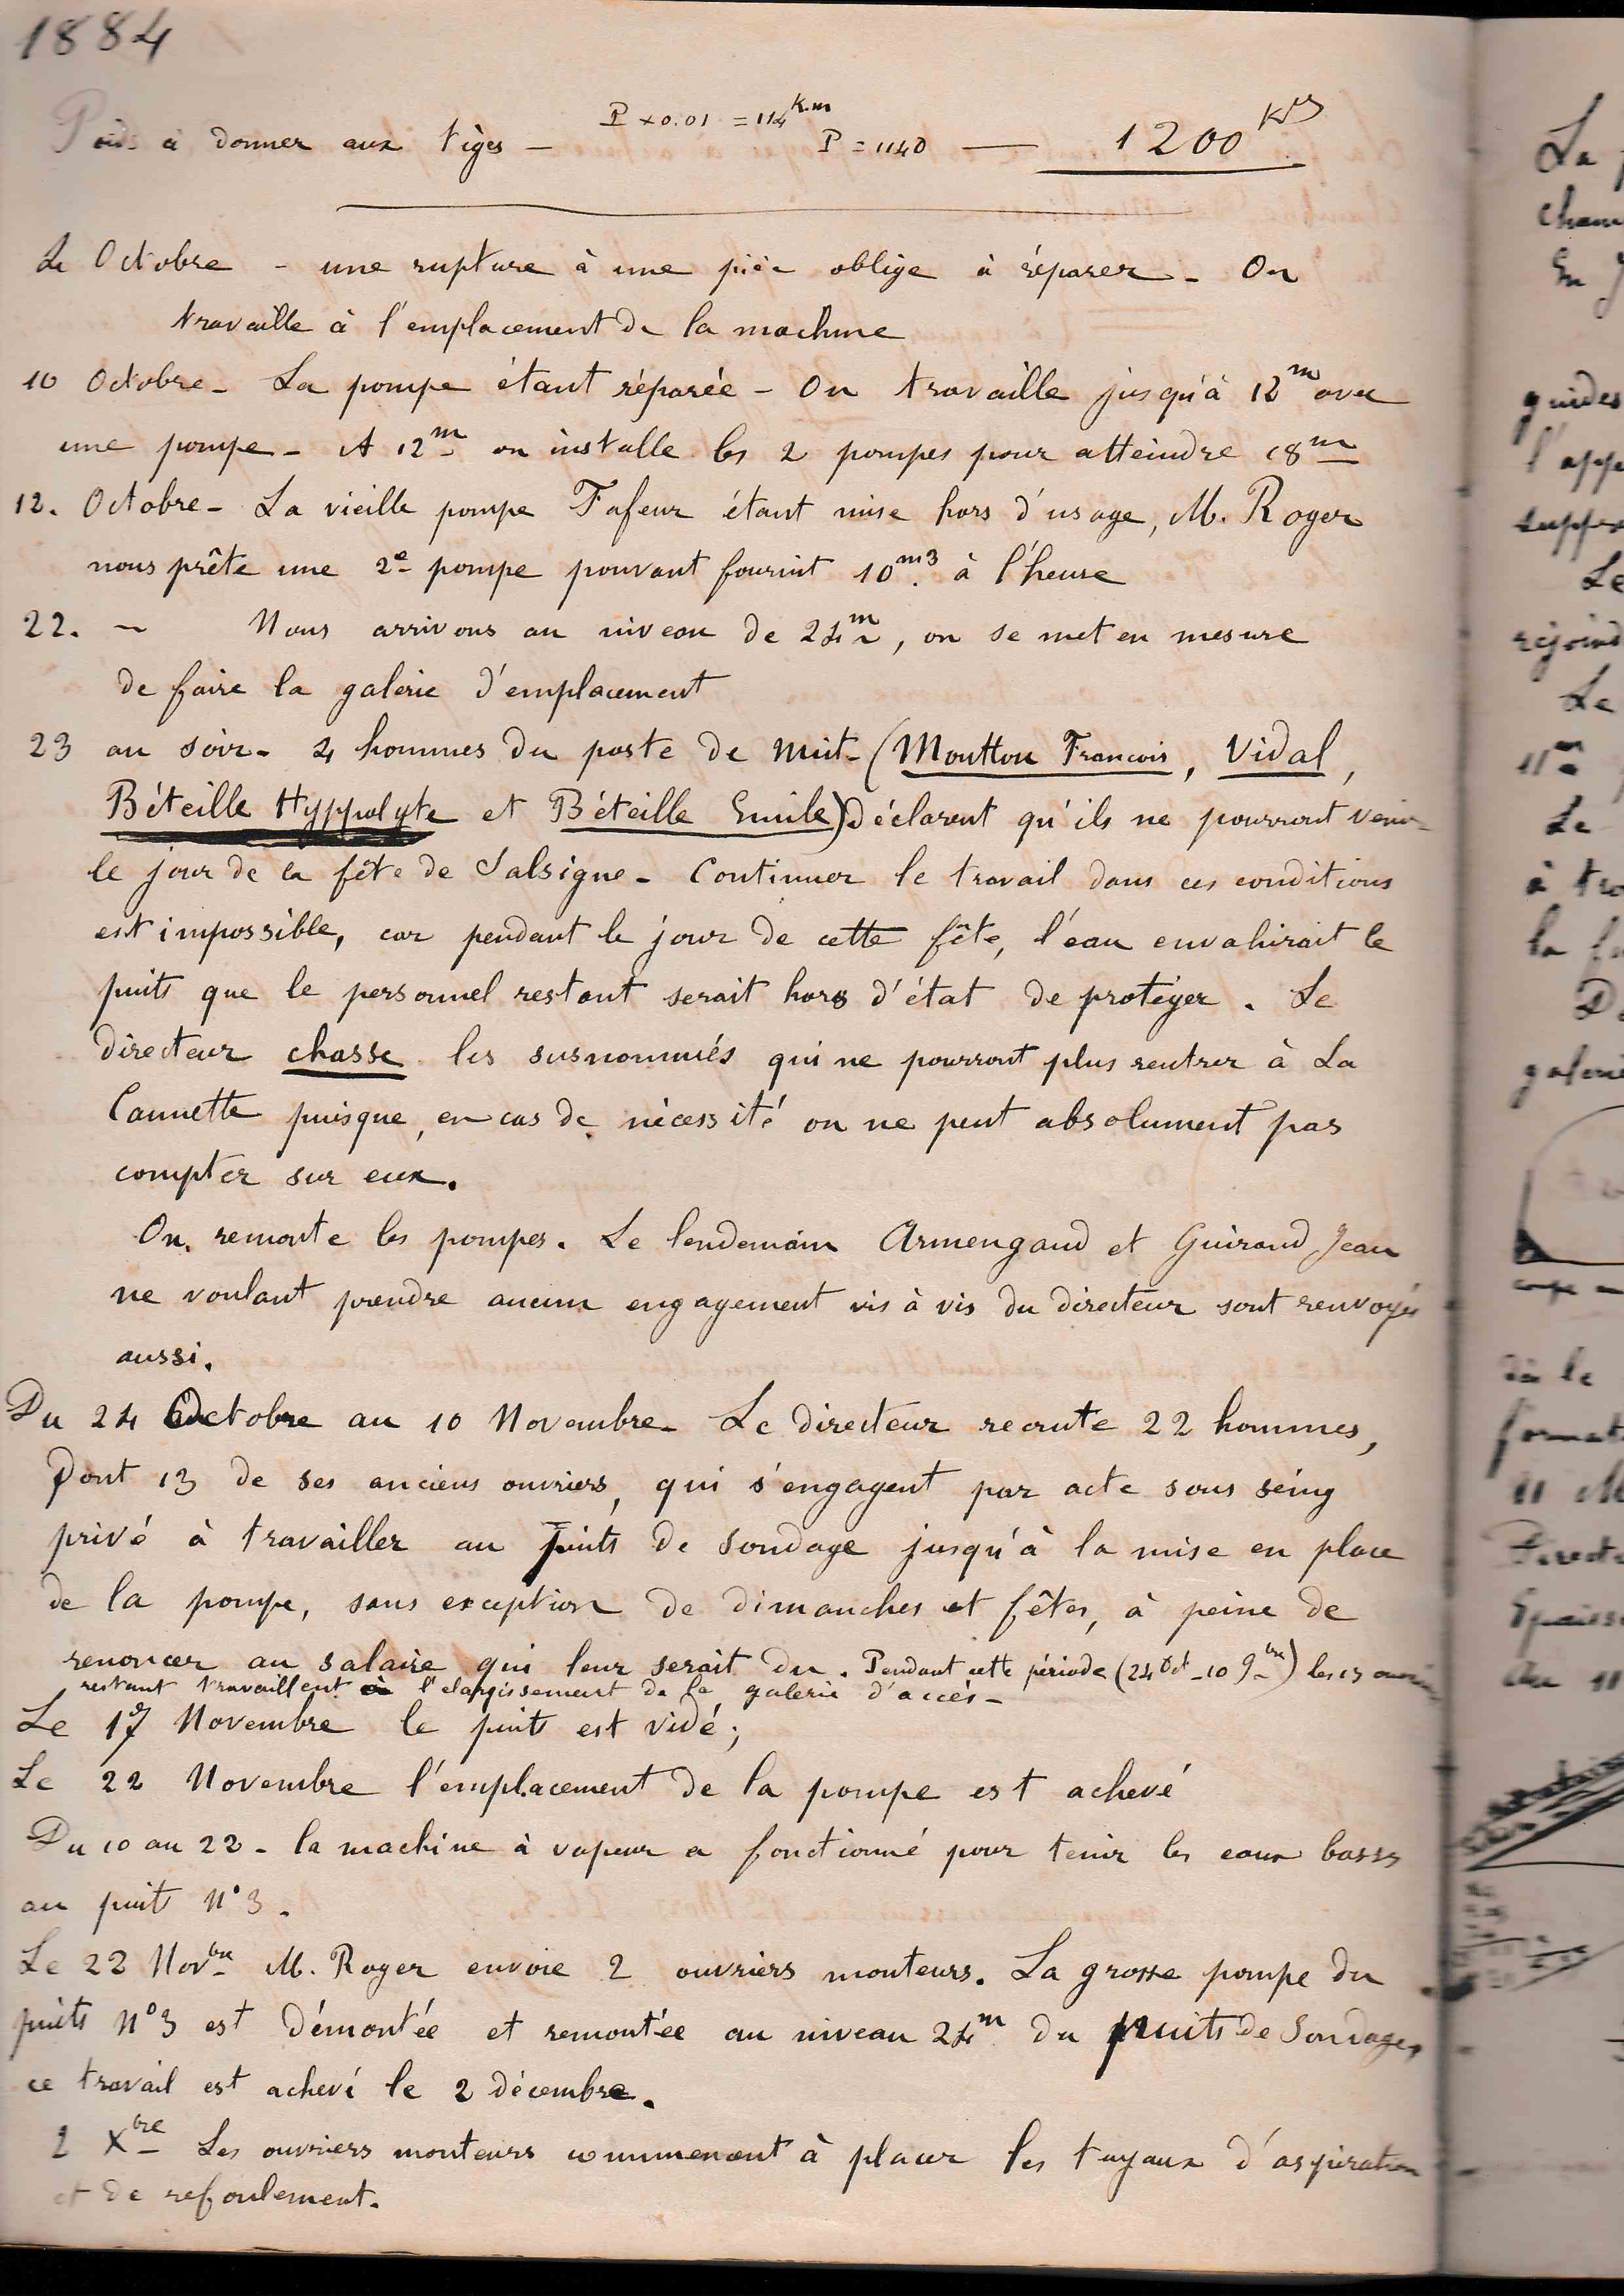 1884
Poids à donner aux tiges — P x 0.01 = 114 k.m P = 1140 — 1200 Ks
Le Octobre - une rupture à une pièce oblige à réparer - On
travaille à l'emplacement de la machine
10 Octobre - La pompe étant réparée - On travaille jusqu'à 12m avec
une pompe - A 12m on installe les 2 pompes pour atteindre 18m
12. Octobre - La vieille pompe Fafeur étant mise hors d'usage, M. Roger
nous prête une 2e pompe pouvant fournit 10 m3 à l'heure
22. ~ Nous arrivons au niveau de 24m, on se met en mesure
de faire la galerie d'emplacement
23 au soir - 4 hommes du poste de nuit - (Moutton Francois, Vidal,
Béteille Hyppolyte et Béteille Emile) déclarent qu'ils ne pourront venir
le jour de la fête de Salsigne - Continuer le travail dans ces conditions
est impossible, car pendant le jour de cette fête, l'eau envahirait le
puits que le personnel restant serait hors d'état de protéger. Le
directeur chasse les susnommés qui ne pourront plus rentrer à La
Caunette puisque, en cas de nécessité on ne peut absolument pas
compter sur eux.
On remonte les pompes. Le lendemain Armengaud et Guiraud Jean
ne voulant prendre aucun engagement vis à vis du directeur sont renvoyés
aussi.
Du 24 Octobre au 10 Novembre - Le directeur recrute 22 hommes,
dont 13 de ses anciens ouvriers, qui s'engagent par acte sous seing
privé à travailler au puits de sondage jusqu'à la mise en place
de la pompe, sans exception de dimanches et fêtes, à peine de
renoncer au salaire qui leur serait du. Pendant cette période (24 Oct - 10 9bre) les 13 ouvriers
restant travaillent à l'élargissement de la galerie d'accès -
Le 17 Novembre le puits est vidé;
Le 22 Novembre l'emplacement de la pompe est achevé
Du 10 au 22 - la machine à vapeur a fonctionné pour tenir les eaux basses
au puits N° 3.
Le 22 Novbre M. Roger envoie 2 ouvriers monteurs. La grosse pompe du
puits N° 3 est démontée et remontée au niveau 24m du puits de Sondage,
ce travail est achevé le 2 décembre.
2 Xbre Les ouvriers monteurs commencent à placer les tuyaux d'aspiration
et de refoulement.
La
cham
En
guides
l'appe
suppr
Le
rejoind
Le
11m
Le
à tra
la
galerie
coupe
de le
format
11 M
Directe
Epaiss
Au 11